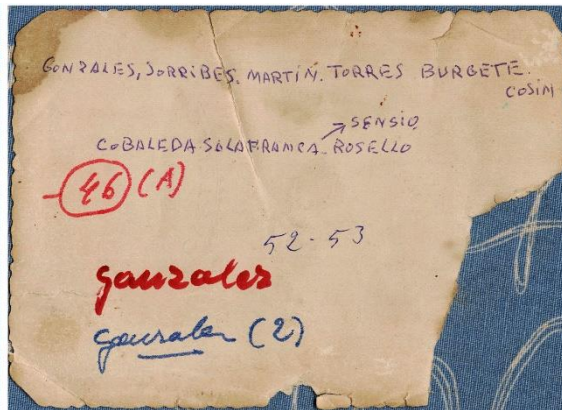 GONZALES, SORRIBES. MARTIN. TORRES BURGETE.
COSIN
SENSIO
COBALEDA. SALAFRANCA. ROSELLO
- 46 (A)
52-53
gonzalez
gonzalez (2)